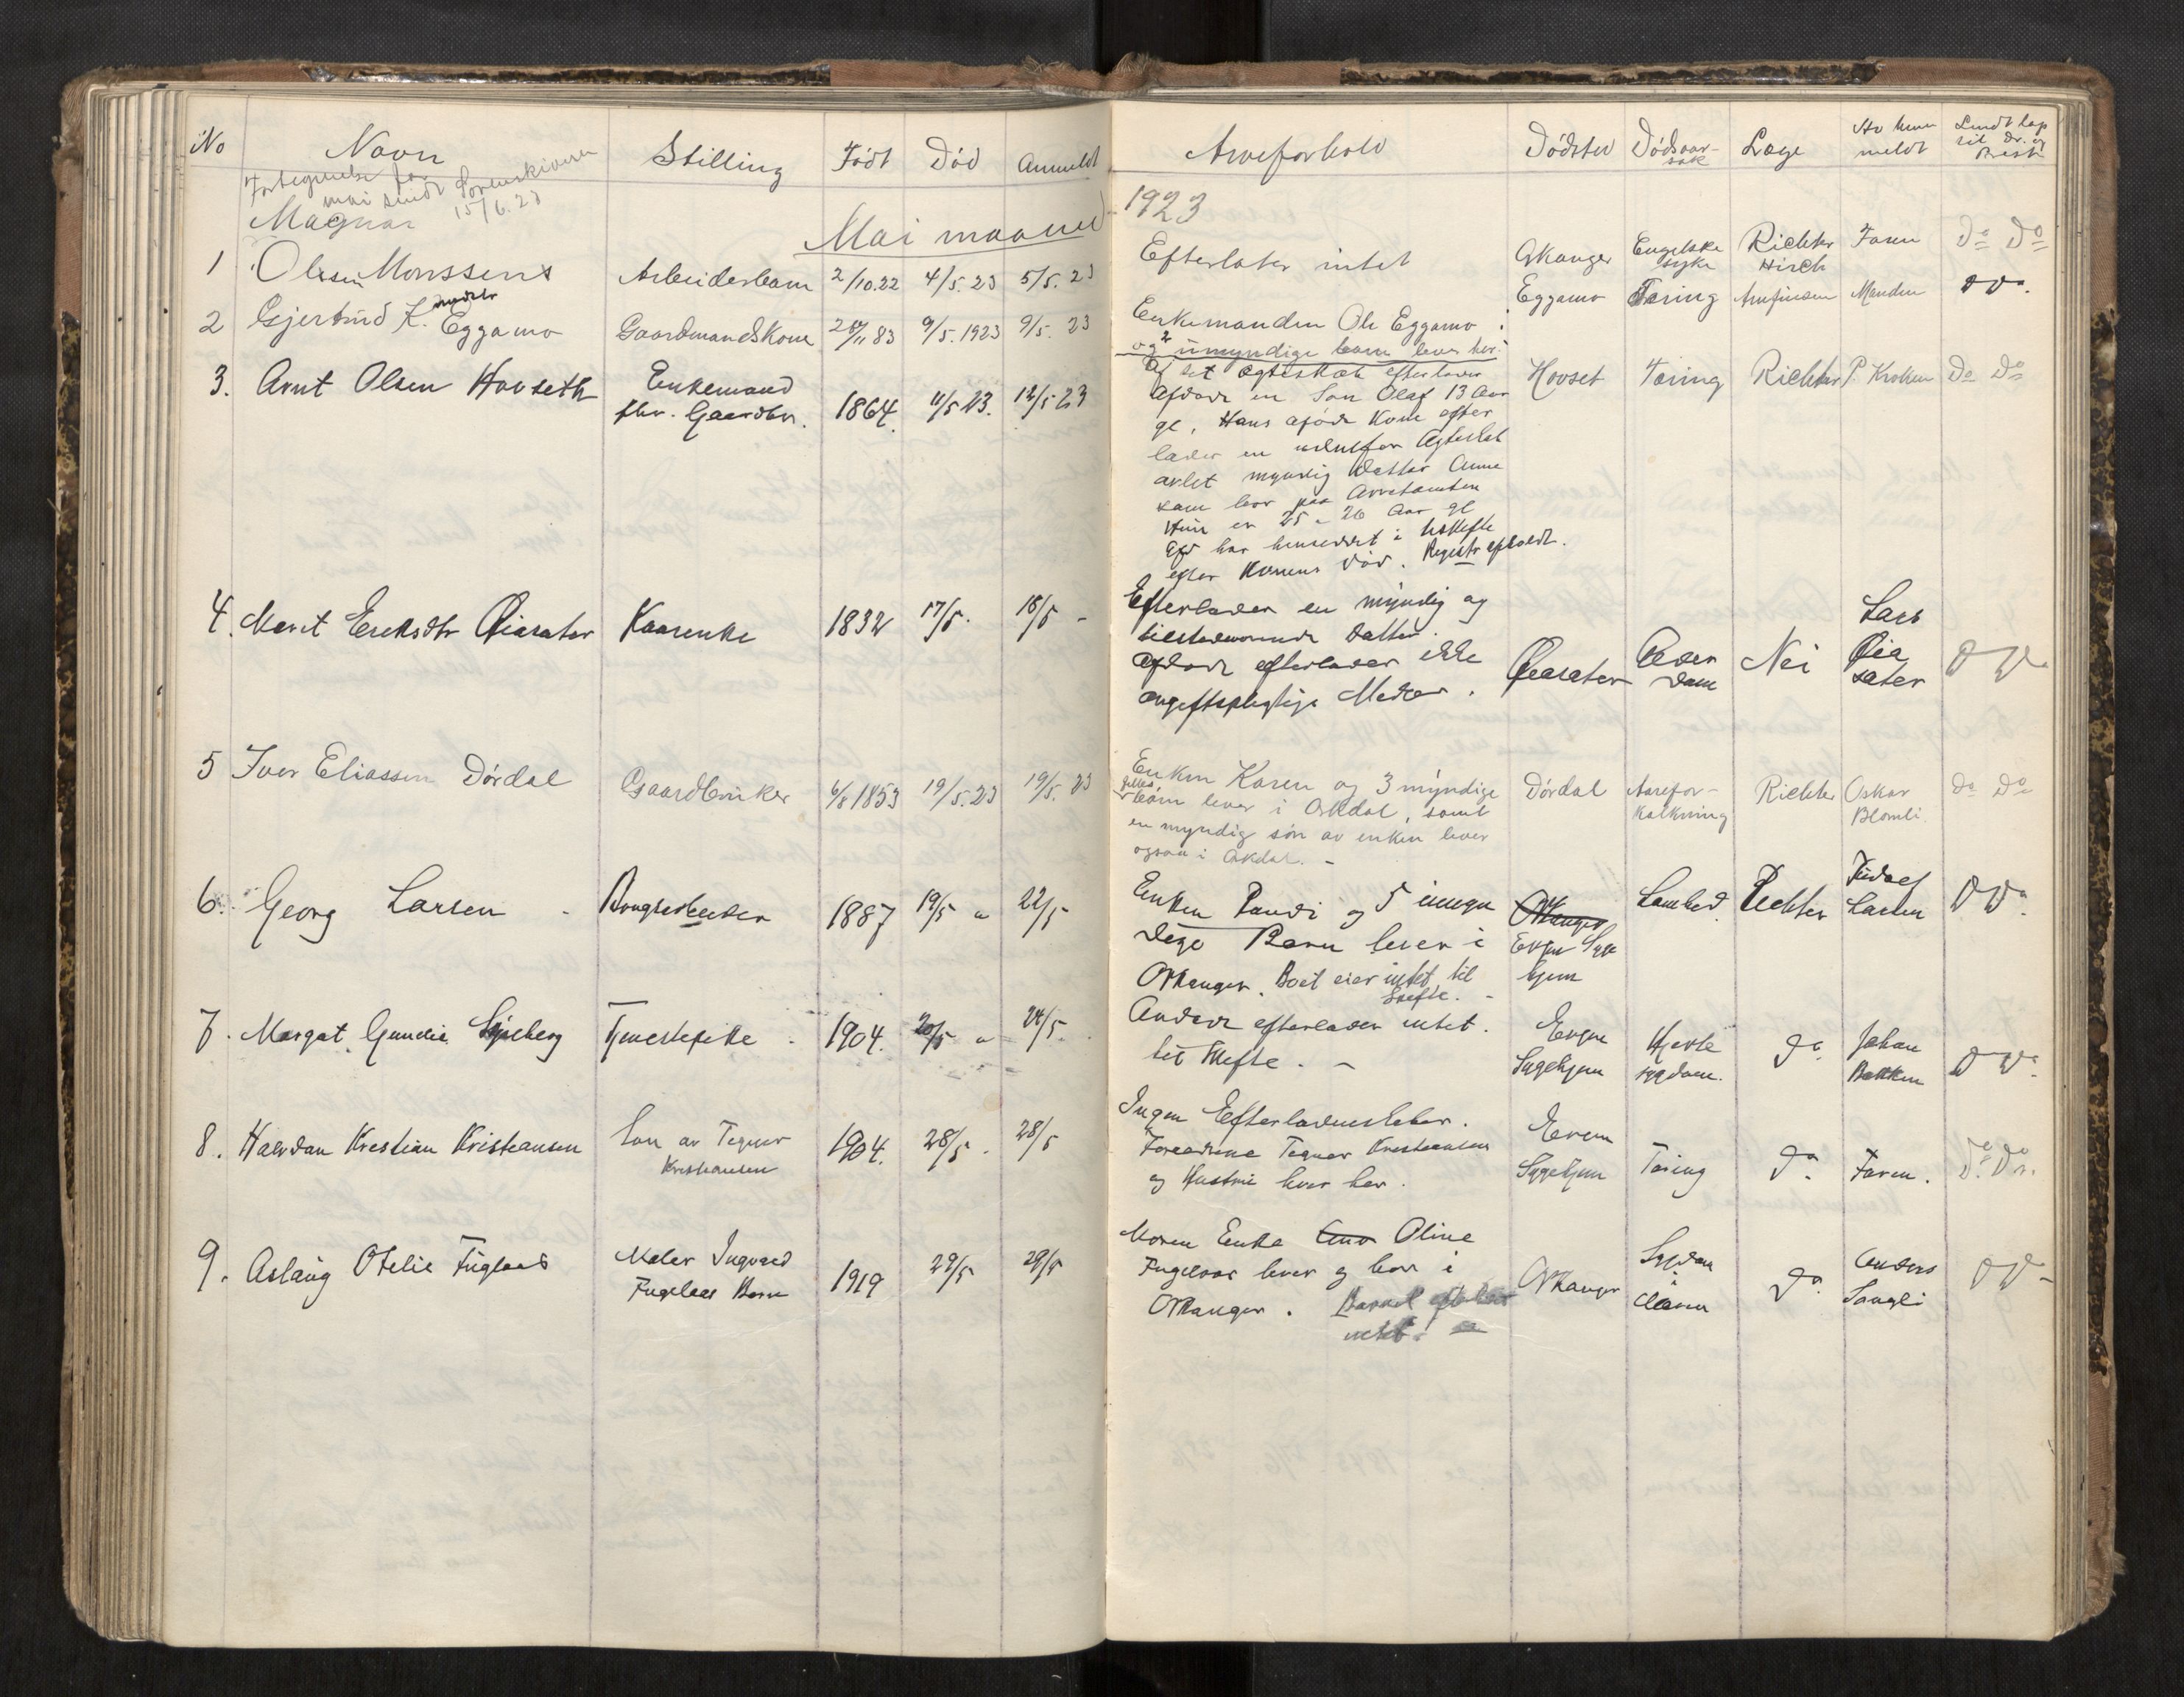 No Navn Stilling Født Død Anmeldt Arveforhold Dødsted Dødsaar-
sak Læge Av hvem
meldt Sendt lap
til Dr. og
Prest
Fortegnelse for
mai sendt Sorenskriveren
15/6.23
Mai maaned 1923
Magnar
1 Olsen Monssens Arbeiderbarn 2/10.22 4/5.23 5/5.23 Efterlater intet Orkanger Engelske
syke Richter
Hirch Faren Do Do
2 Gjertrud K. Eggamo Gaardmandskone 9/5.1923 9/5.23 Enkemanden Ole Eggamo
og 2 umyndige barn lever her. Eggamo Tæring Arnfinsen Manden Do
3. Arnt Olsen Hovseth Enkemand
fhv. Gaardbr. 1864. 11/5 23. 12/5 23 Af det Ægteskab efterlader
Afdøde en Søn Olaf 13 Aar
gl. Hans afdøde Kone efter
lader en udenfor Ægteskab
avlet myndig Datter Anna
som bor paa Orvetomten
Hun er 25 a 26 Aar gl
Afd har hensiddet i uskiftet
efter Konens død. Registr afholdt. Hovset Tæring Richter P. Kroken Do Do
4. Marit Eriksdtr Øiasæter Kaarenke 1832 17/5. 18/5 - Efterlader en myndig og
tilstedeværende Datter.
Afdøde efterlader ikke
avgiftspligtige Midler. Øiasæter Alder
dom Nei Lars
Øia
sæter Do
5 Iver Eliassen Dørdal Gaardbruker 6/8 1853 19/5.23 19/5.23 Enken Karen og 3 myndige
felles
barn lever i Orkdal, samt
en myndig søn av enken lever
ogsaa i Orkdal. - Dørdal Aarefor-
kalkning Richter Oskar
Blomli Do Do
6. Georg Larsen Brugsarbeider 1887 19/5 " 22/5 Enken Randi og 5 umyn
dige Barn lever i
Orkanger. Boet eier intet til
Skifte. - Orkanger
Evjen Syge
hjem Richter Larsen Do
7. Margot Gundia Tjenestepike 1904. 20/5 " 24/5. Avdøde efterlader intet
til Skifte. - Evjen
Sygehjem Hjerte
sygdom. Do Johan
Bakken Do
8. Halvdan Kristian Kristiansen Søn av Tegner
Kristiansen 1904. 28/5 - 28/5 Ingen Efterladenskaber.
Forældrene Tegner Kristiansen
og Hustru lever her. Evjen
Sygehjem Tæring Do Faren. Do. Do.
9. Aslaug Otelie Fuglaas Maler Ingvard
Fuglaas Barn 1919 29/5 29/5 Moren Enke Oline
Fuglaas lever og bor i
Orkanger. Barnet efterlader
intet. Orkanger Sygdom
i Do Anders
Sangli Do